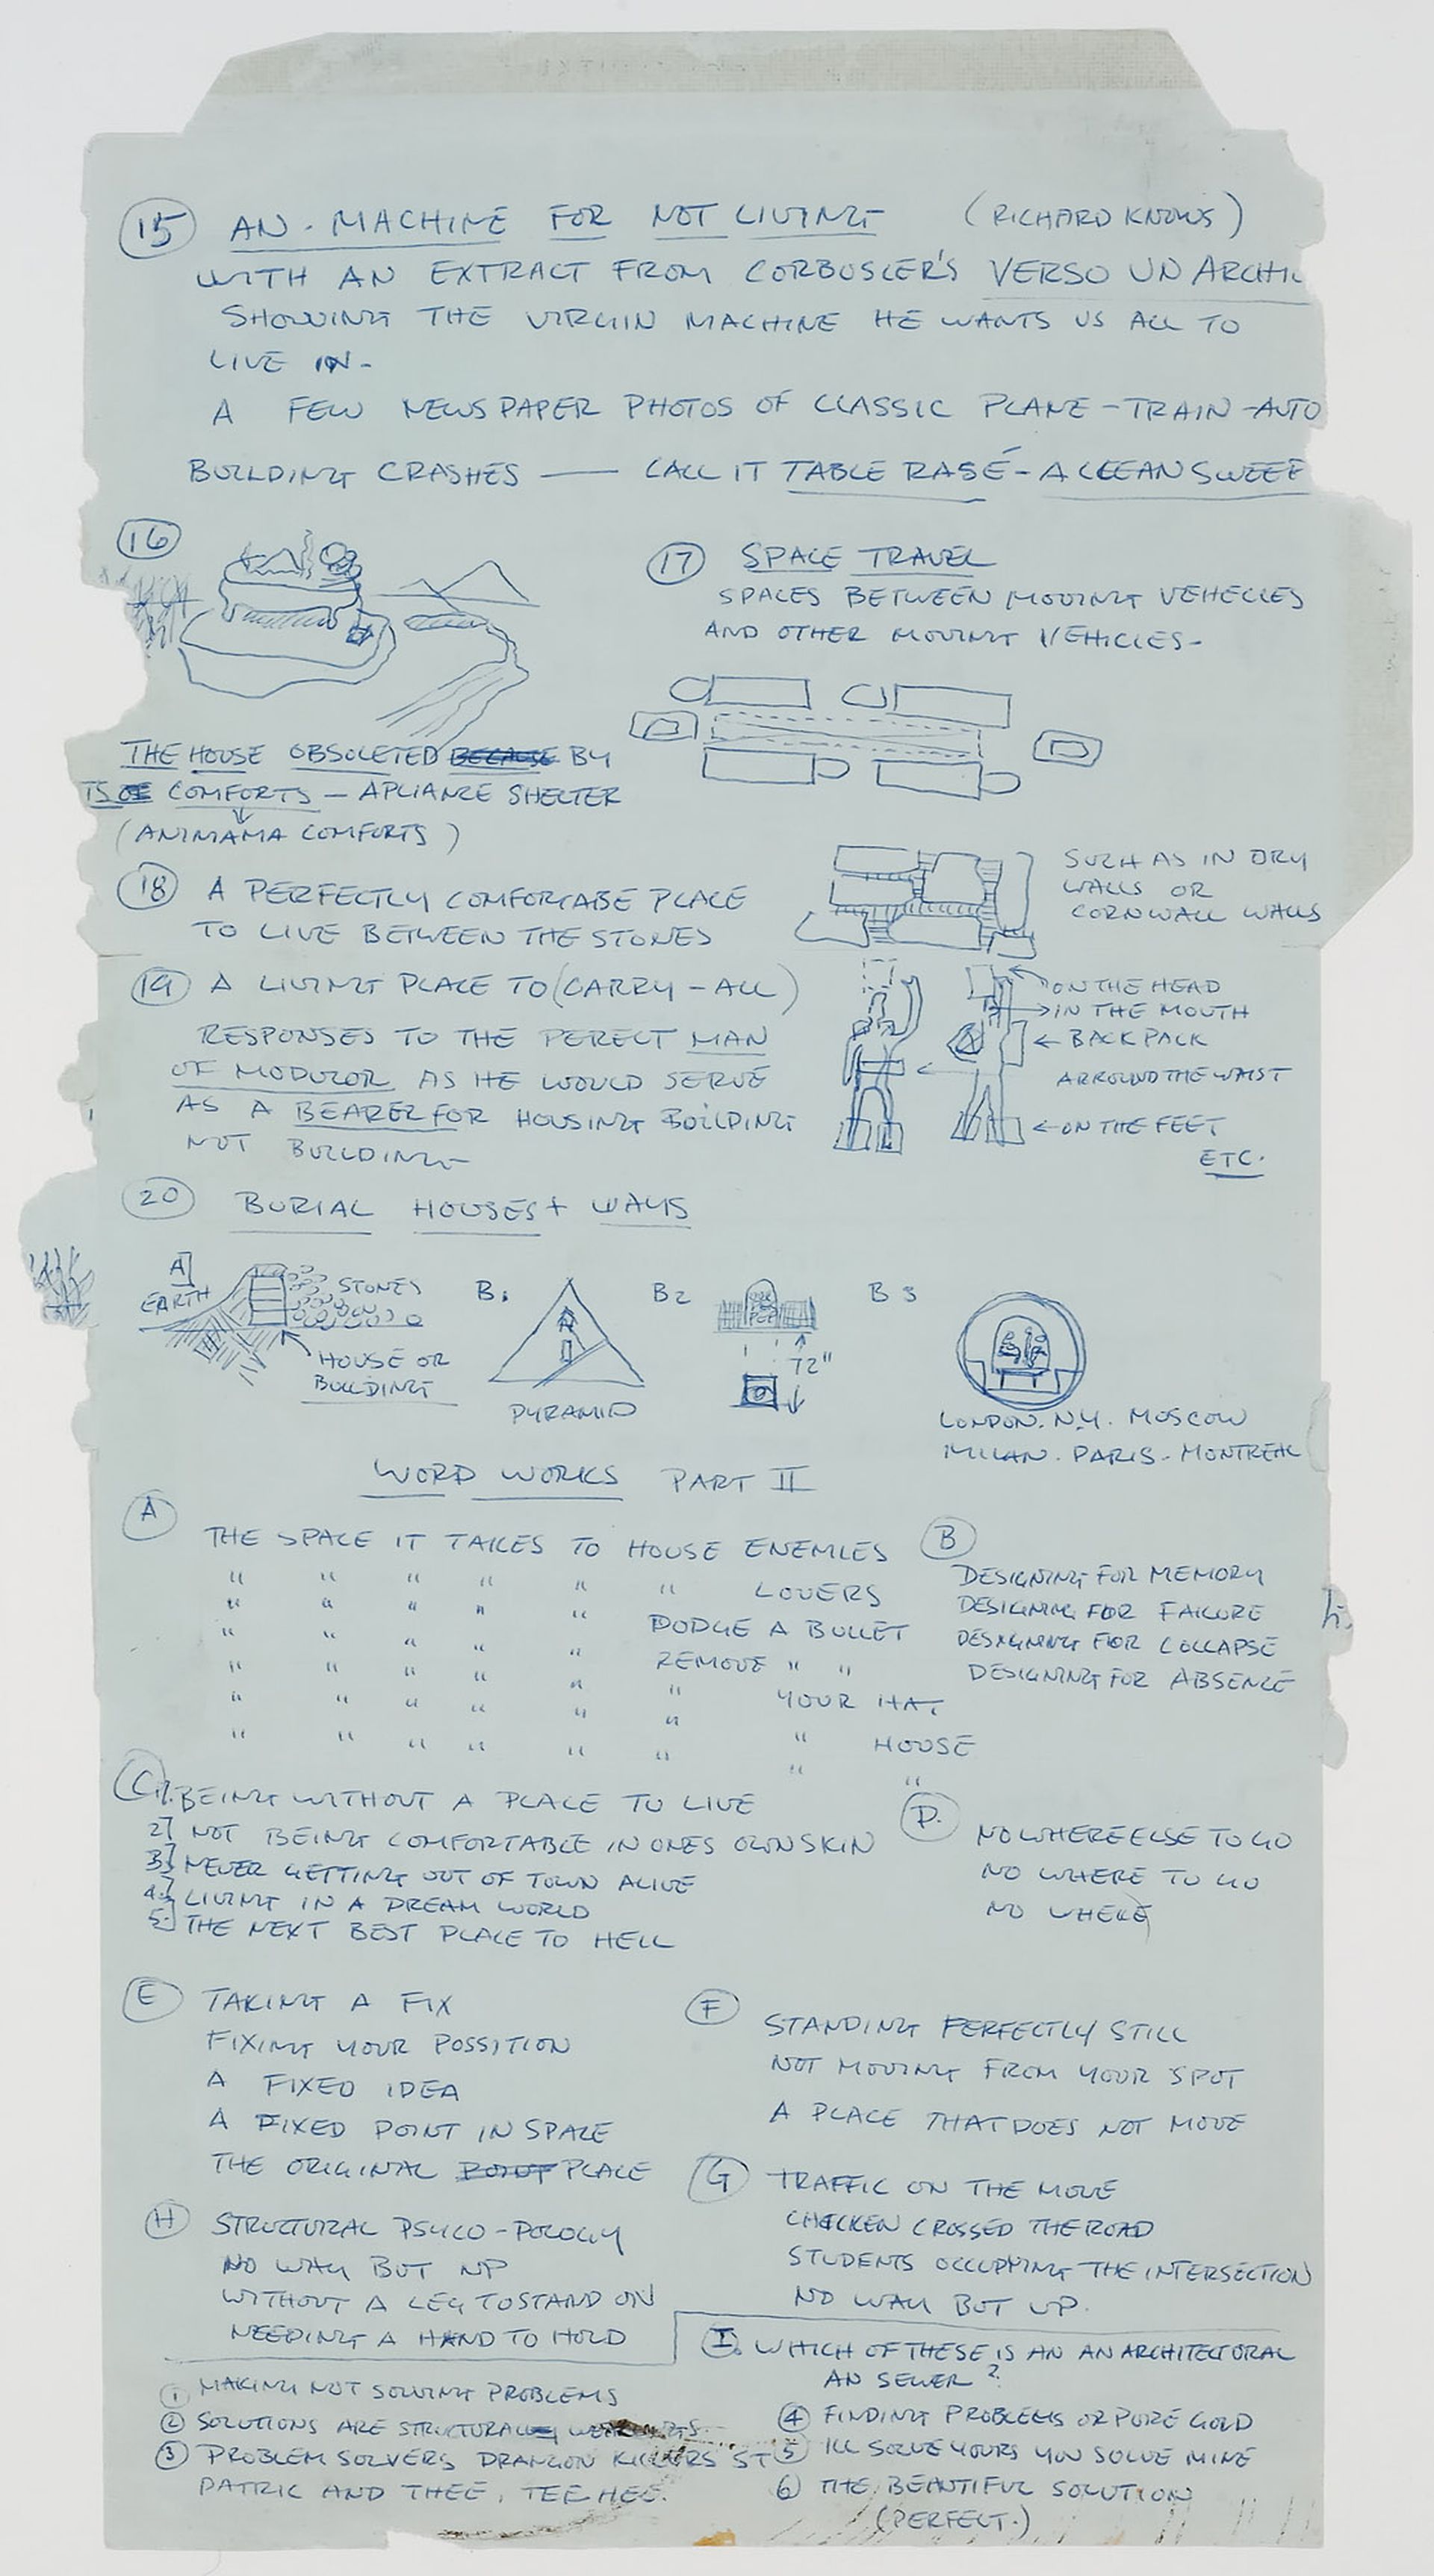 15 AN. MACHINE FOR NOT LIVING (RICHARD KNOWS)
WITH AN EXTRACT FROM CORBUSIER'S VERSO UN ARCHI
SHOWING THE VIRGIN MACHINE HE WANTS US ALL TO
LIVE IN-
A FEW NEWSPAPER PHOTOS OF CLASSIC PLANE-TRAIN-AUTO
BUILDING CRASHES — CALL IT TABLE RASÉ-A CLEAN SWEEP
16
THE HOUSE OBSOLETED BECAUSE BY
COMFORTS - APLIANCE SHELTER
(ANIMAMA COMFORTS)
17 SPACE TRAVEL
SPACES BETWEEN MOVING VEHECLES
AND OTHER MOVING VEHICLES-
18 A PERFECTLY COMFORTABE PLACE
TO LIVE BETWEEN THE STONES
SUCH AS IN DRY
WALLS OR
CORNWALL WALLS
19 A LIVING PLACE TO (CARRY-ALL)
RESPONSES TO THE PERECT MAN
OF MODULOR AS HE WOULD SERVE
AS A BEARER FOR HOUSING BUILDING
NOT BUILDING
ON THE HEAD
IN THE MOUTH
BACK PACK
ARROUND THE WAIST
ON THE FEET
ETC.
20 BURIAL HOUSES + WAYS
A
EARTH
STONES
HOUSE OR
BUILDING
B1
PYRAMID
B2
72"
B3
LONDON. N.Y. MOSCOW
MILAN. PARIS. MONTREAL
WORD WORKS PART II
A
THE SPACE IT TAKES TO HOUSE ENEMIES
" " " " " " LOVERS
" " " " " DODGE A BULLET
" " " " " REMOVE " "
" " " " " " YOUR HAT
" " " " " " " HOUSE
" " " " " " " "
B
DESIGNING FOR MEMORY
DESIGNING FOR FAILURE
DESIGNING FOR COLLAPSE
DESIGNING FOR ABSENCE
C 1. BEING WITHOUT A PLACE TO LIVE
2] NOT BEING COMFORTABLE IN ONES OWN SKIN
3] NEVER GETTING OUT OF TOWN ALIVE
4.] LIVING IN A DREAM WORLD
5.] THE NEXT BEST PLACE TO HELL
D.
NO WHERE ELSE TO GO
NO WHERE TO GO
NO WHERE
E TAKING A FIX
FIXING YOUR POSSITION
A FIXED IDEA
A FIXED POINT IN SPACE
THE ORIGINAL POINT PLACE
F
STANDING PERFECTLY STILL
NOT MOVING FROM YOUR SPOT
A PLACE THAT DOES NOT MOVE
G TRAFFIC ON THE MOVE
CHICKEN CROSSED THE ROAD
STUDENTS OCCUPYING THE INTERSECTION
NO WAY BUT UP.
H STRUCTURAL PSYCO-POLOGY
NO WAY BUT UP
WITHOUT A LEG TO STAND ON
NEEDING A HAND TO HOLD
I. WHICH OF THESE IS AN AN ARCHITECTORAL
AN SEWER?
1 MAKING NOT SOLVING PROBLEMS
2 SOLUTIONS ARE STRUCTURAL
3 PROBLEM SOLVERS DRANGON KILLERS ST
PATRIC AND THEE, TEE HEE.
4 FINDING PROBLEMS OR PURE GOLD
5 ILL SOLVE YOURS YOU SOLVE MINE
6 THE BEAUTIFUL SOLUTION
(PERFECT.)